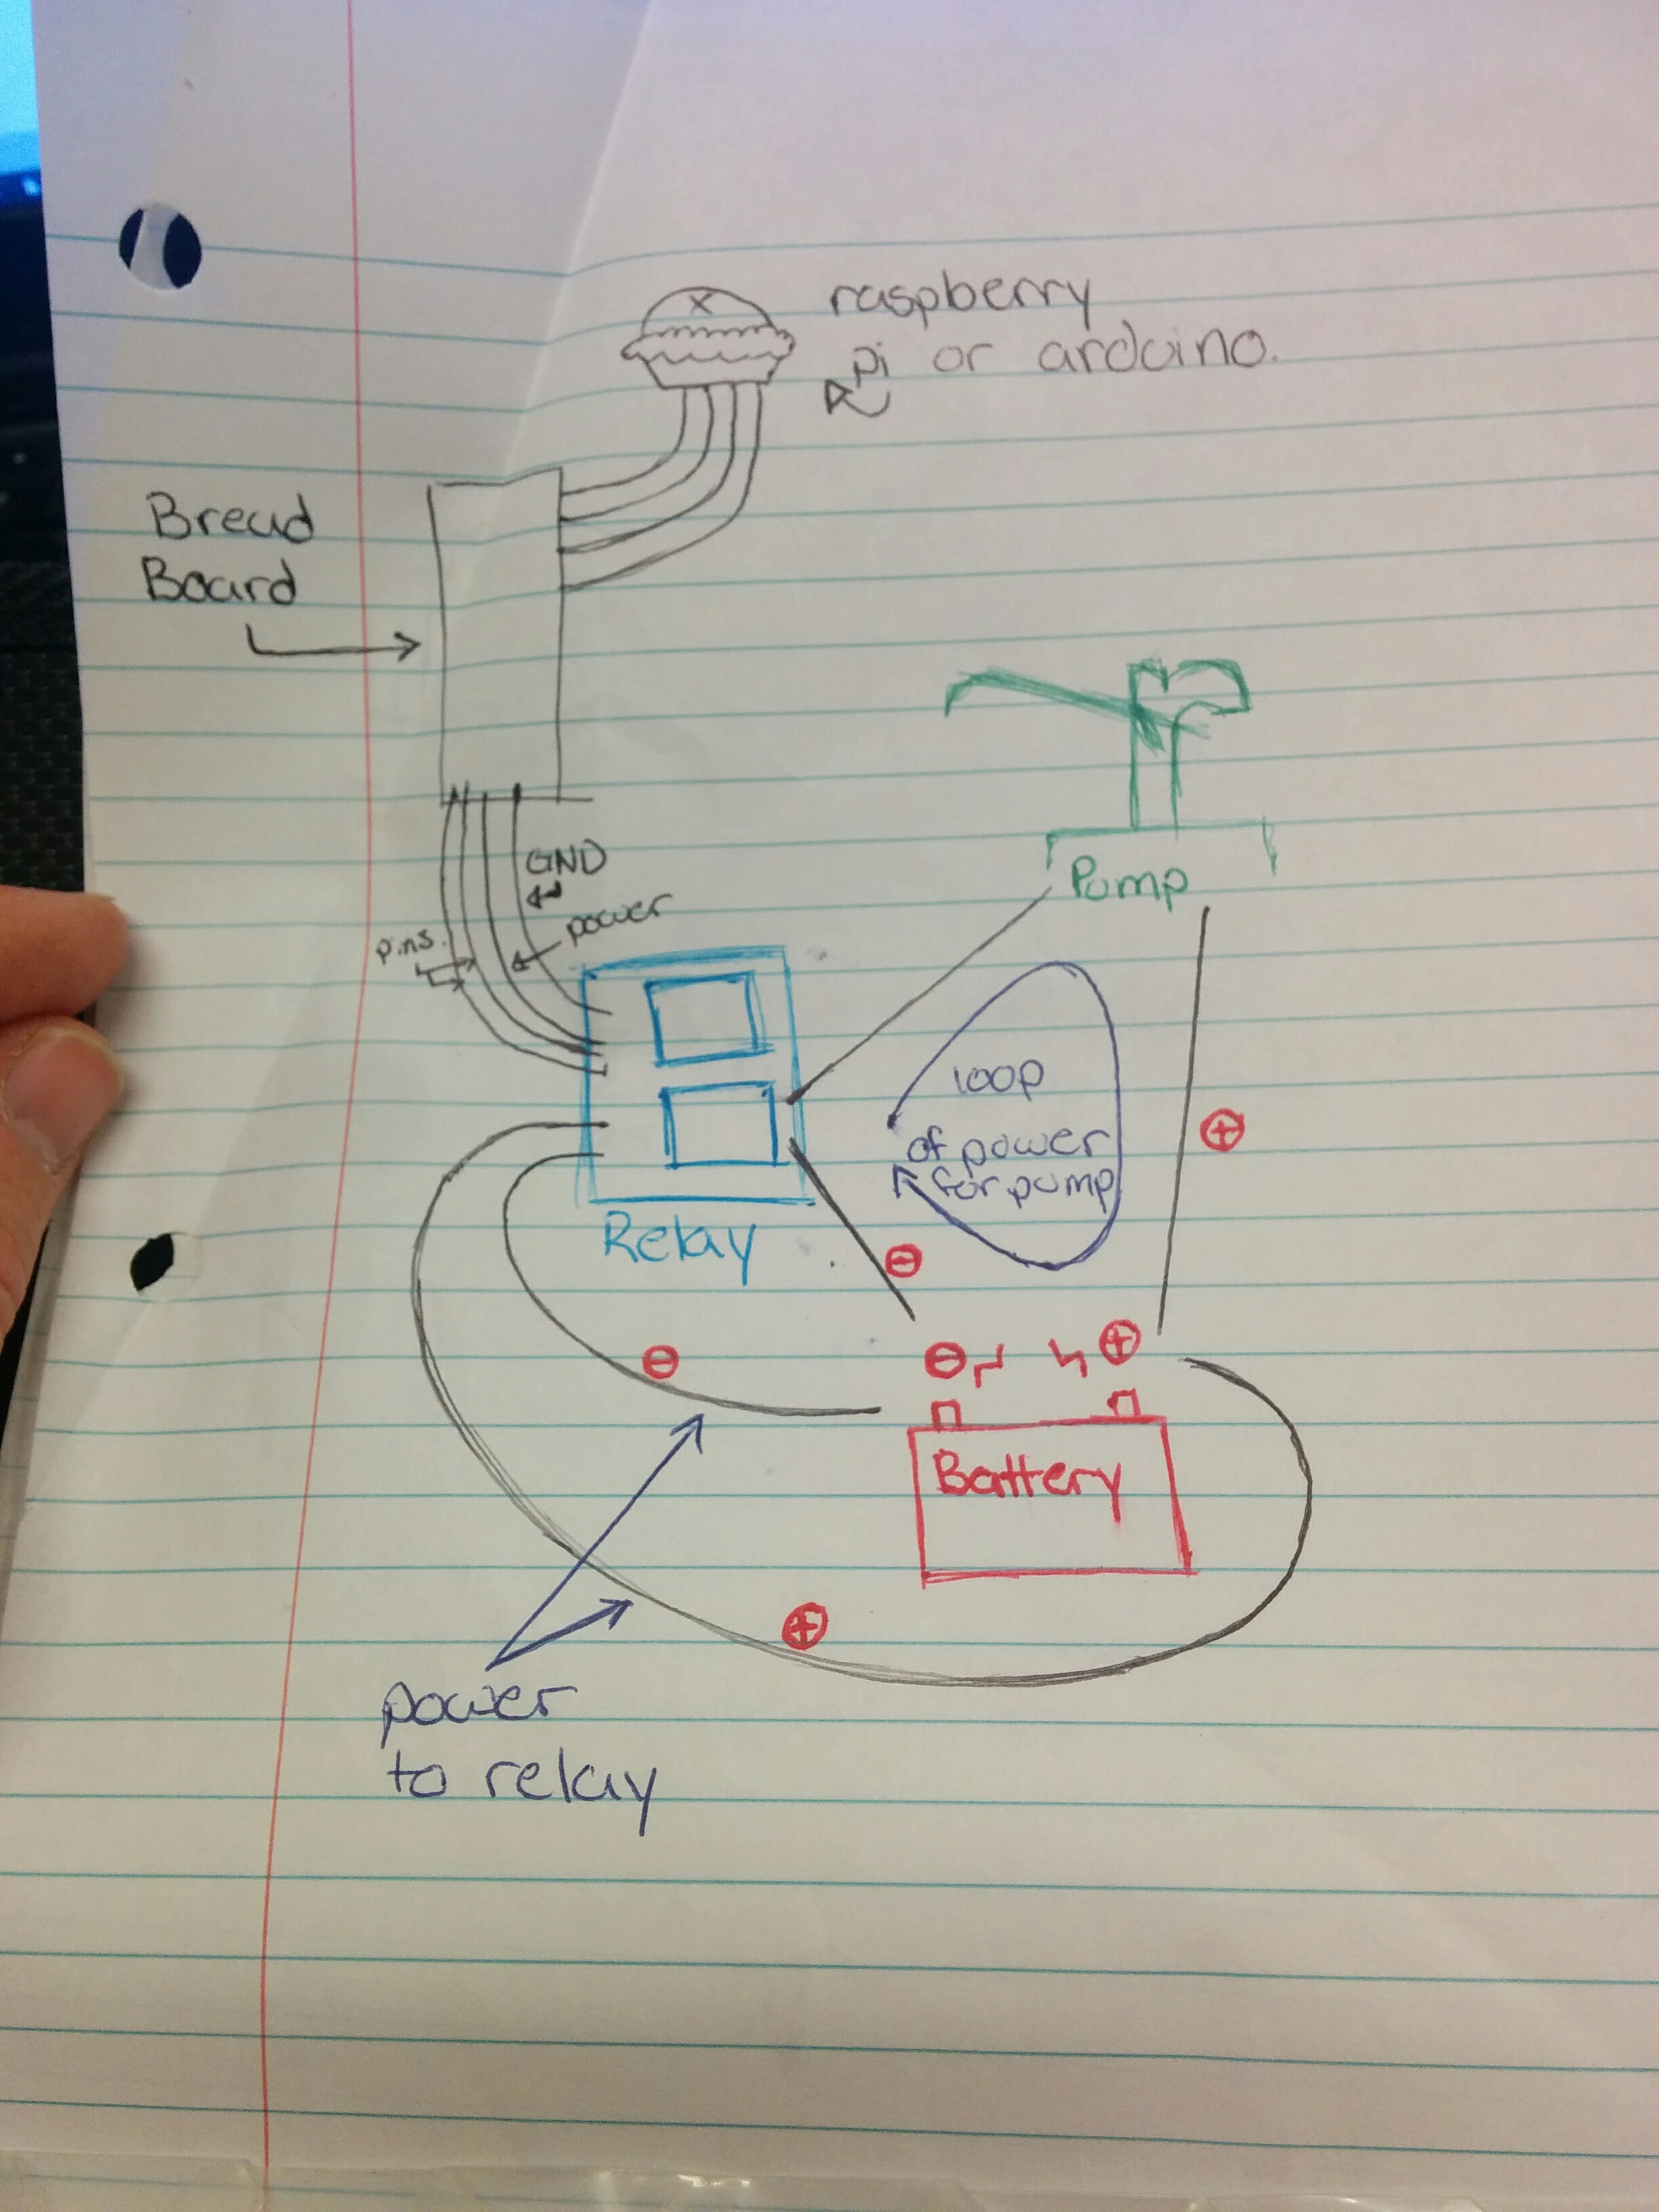 raspberry
pi or arduino.
Bread
Board
GND
power
pins
Pump
loop
of power
for pump
⊕
Relay
⊖
⊖
⊖
⊕
Battery
⊕
power
to relay